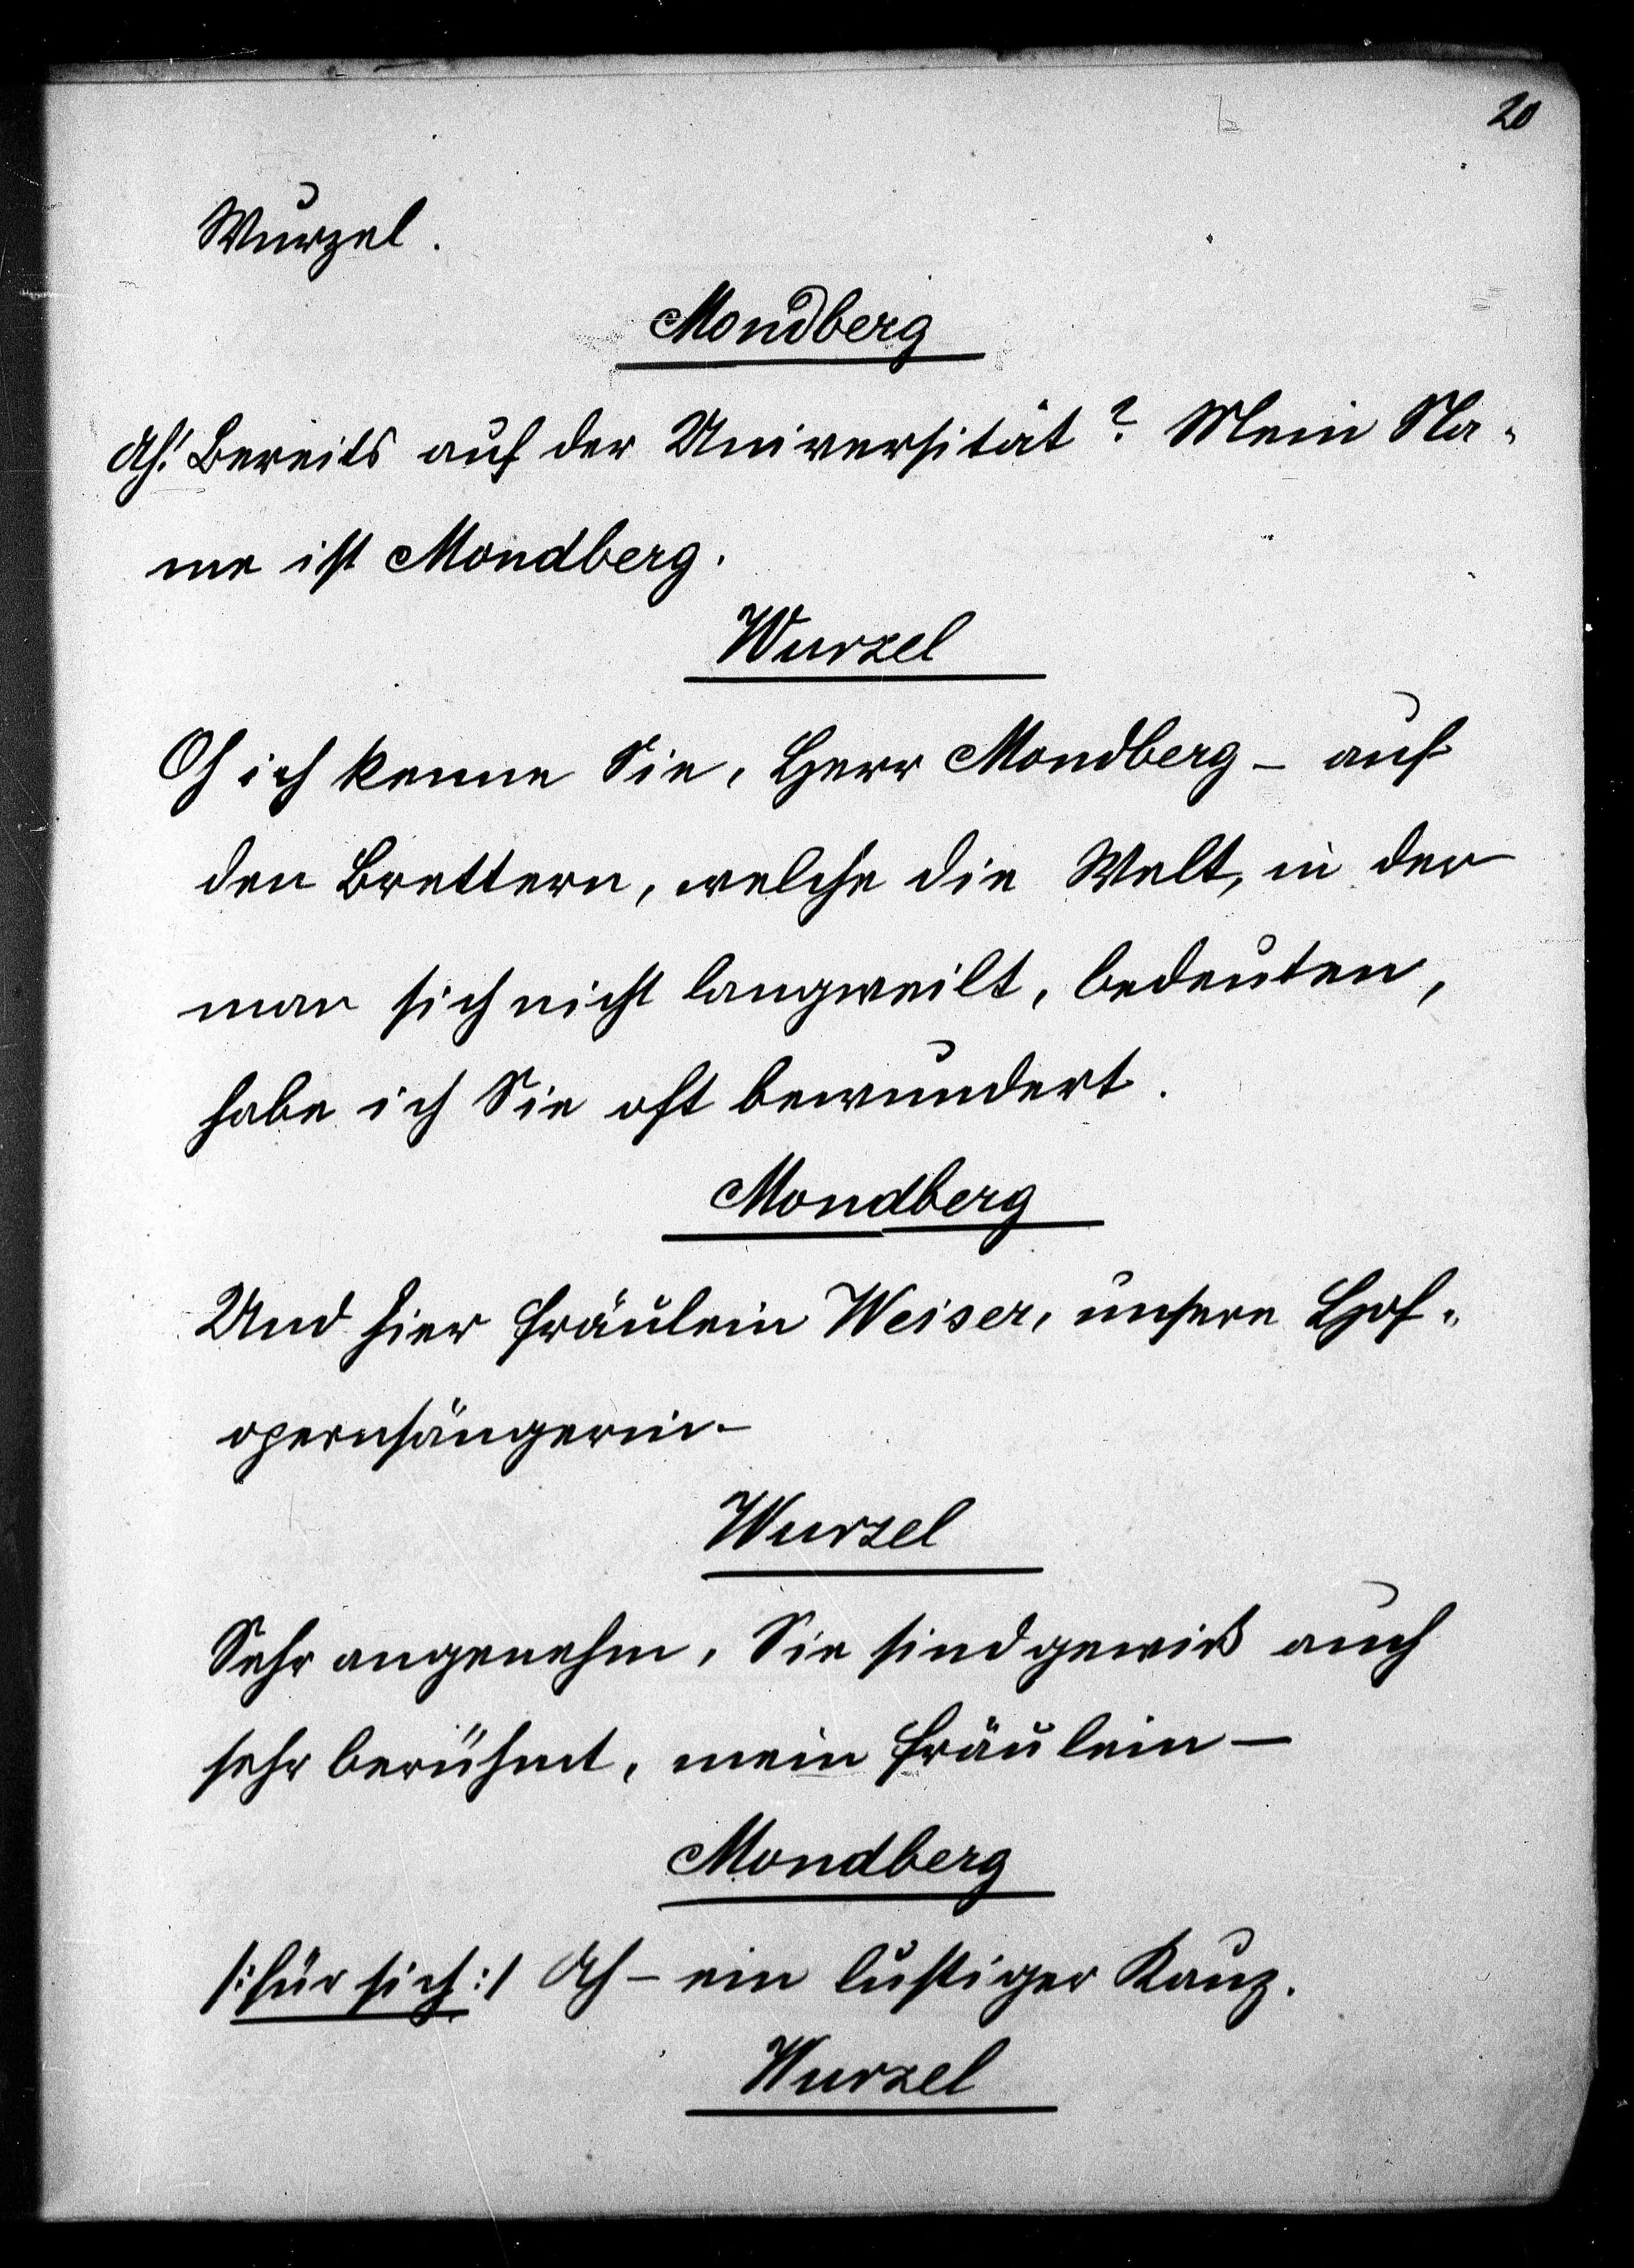 20
Wurzel.
Mondberg
Ah! Bereits auf der Universität? Mein Na-
me ist Mondberg.
Wurzel
Oh ich kenne Sie, Herr Mondberg – auf
den Brettern, welche die Welt, in der
man sich nicht langweilt, bedeuten,
habe ich Sie oft bewundert.
Mondberg
Und hier Fräulein Weiser, unsere Hof-
opernsängerin –
Wurzel
Sehr angenehm, Sie sind gewiß auch
sehr berühmt, mein Fräulein –
Mondberg
/: für sich :/ Ah – ein lustiger Kauz.
Wurzel